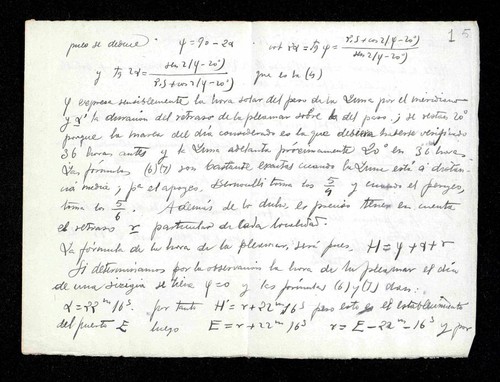 15
pues se deduce φ = 90 - 2α cot 2α = tg φ = (2,5 + cos 2(φ-20°)) / (sen 2(φ-20°))
y tg 2α = (sen 2(φ-20°)) / (2,5 + cos 2(φ-20°)) que es la (4)
φ expresa sensiblemente la hora solar del paso de la Luna por el meridiano
y α la duración del retraso de la pleamar sobre la del paso; se restan 20°
porque la marea del día considerado es la que debiera haberse verificado
36 horas antes y la Luna adelanta próximamente 20° en 36 horas.
Las fórmulas (6) (7) son bastante exactas cuando la Luna está a distan-
cia media; pa el apogeo, Bernoulli toma los 5/4 y cuando el perigeo,
toma los 5/6. Además de lo dicho, es preciso tener en cuenta
el retraso r particular de cada localidad.
La fórmula de la hora de la pleamar, será pues, H = φ + α + r
Si determinamos por la observación la hora de la pleamar el día
de una sizigia se tiene φ=0 y las fórmulas (6) y (7) dan:
α = 22m 16s por tanto H' = r + 22m 16s pero esto es el establecimiento
del puerto E luego E = r + 22m 16s r = E - 22m - 16s y por